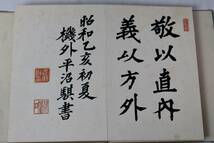 敬以直内
義以方外
昭和乙亥初夏
機外平沼騏書